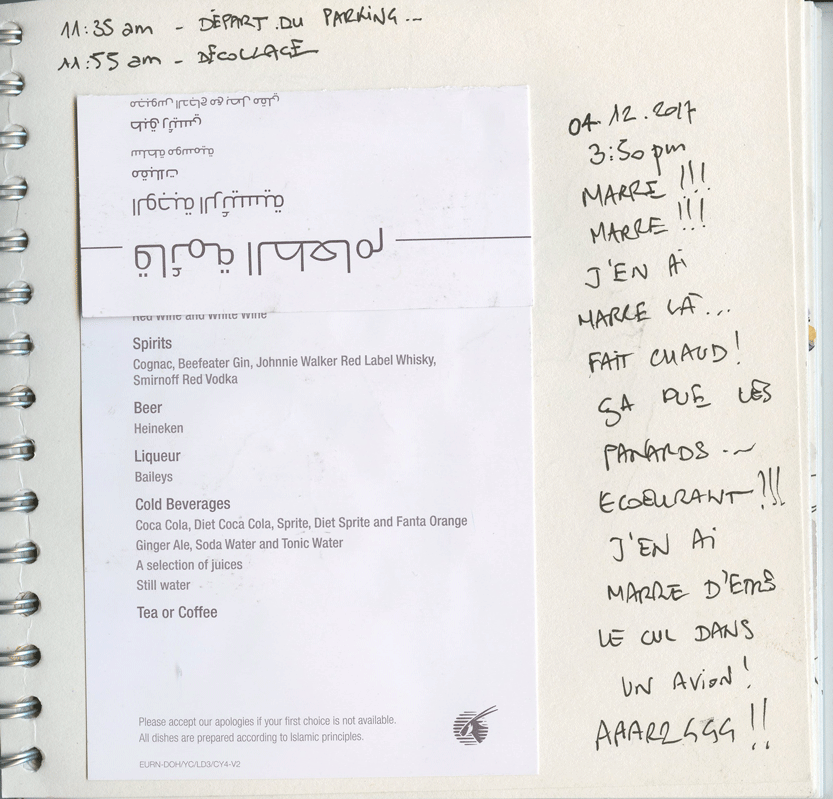 11:35 am - DÉPART DU PARKING...
11:55 am - DÉCOLLAGE
قائمة الطعام
الوجبة الرئيسية
Red Wine and White Wine
Spirits
Cognac, Beefeater Gin, Johnnie Walker Red Label Whisky,
Smirnoff Red Vodka
Beer
Heineken
Liqueur
Baileys
Cold Beverages
Coca Cola, Diet Coca Cola, Sprite, Diet Sprite and Fanta Orange
Ginger Ale, Soda Water and Tonic Water
A selection of juices
Still water
Tea or Coffee
Please accept our apologies if your first choice is not available.
All dishes are prepared according to Islamic principles.
EURN-DOH/YC/LD3/CY4-V2
04.12.2017
3:50 pm
MARRE !!!
MARRE !!!
J'EN AI
MARRE LÀ...
FAIT CHAUD !
ÇA PUE LES
PANARDS...
ECOEURANT !!!
J'EN AI
MARRE D'ETRE
LE CUL DANS
UN AVION !
AAARRGGG !!